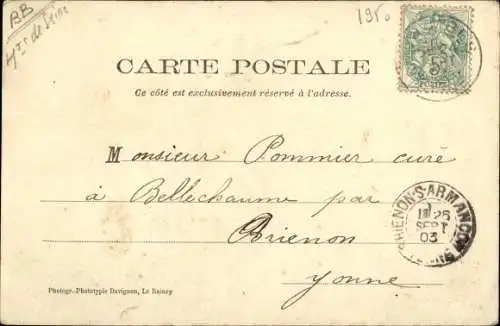 BB
Hts de Seine
195.
CARTE POSTALE
Ce côté est exclusivement réservé à l'adresse.
Monsieur Pommier curé
à Bellechaume par
Brienon
Yonne
BRIENON-S-ARMANÇON
26
SEPT
03
Photogr.-Phototypie Davignon, Le Rainey